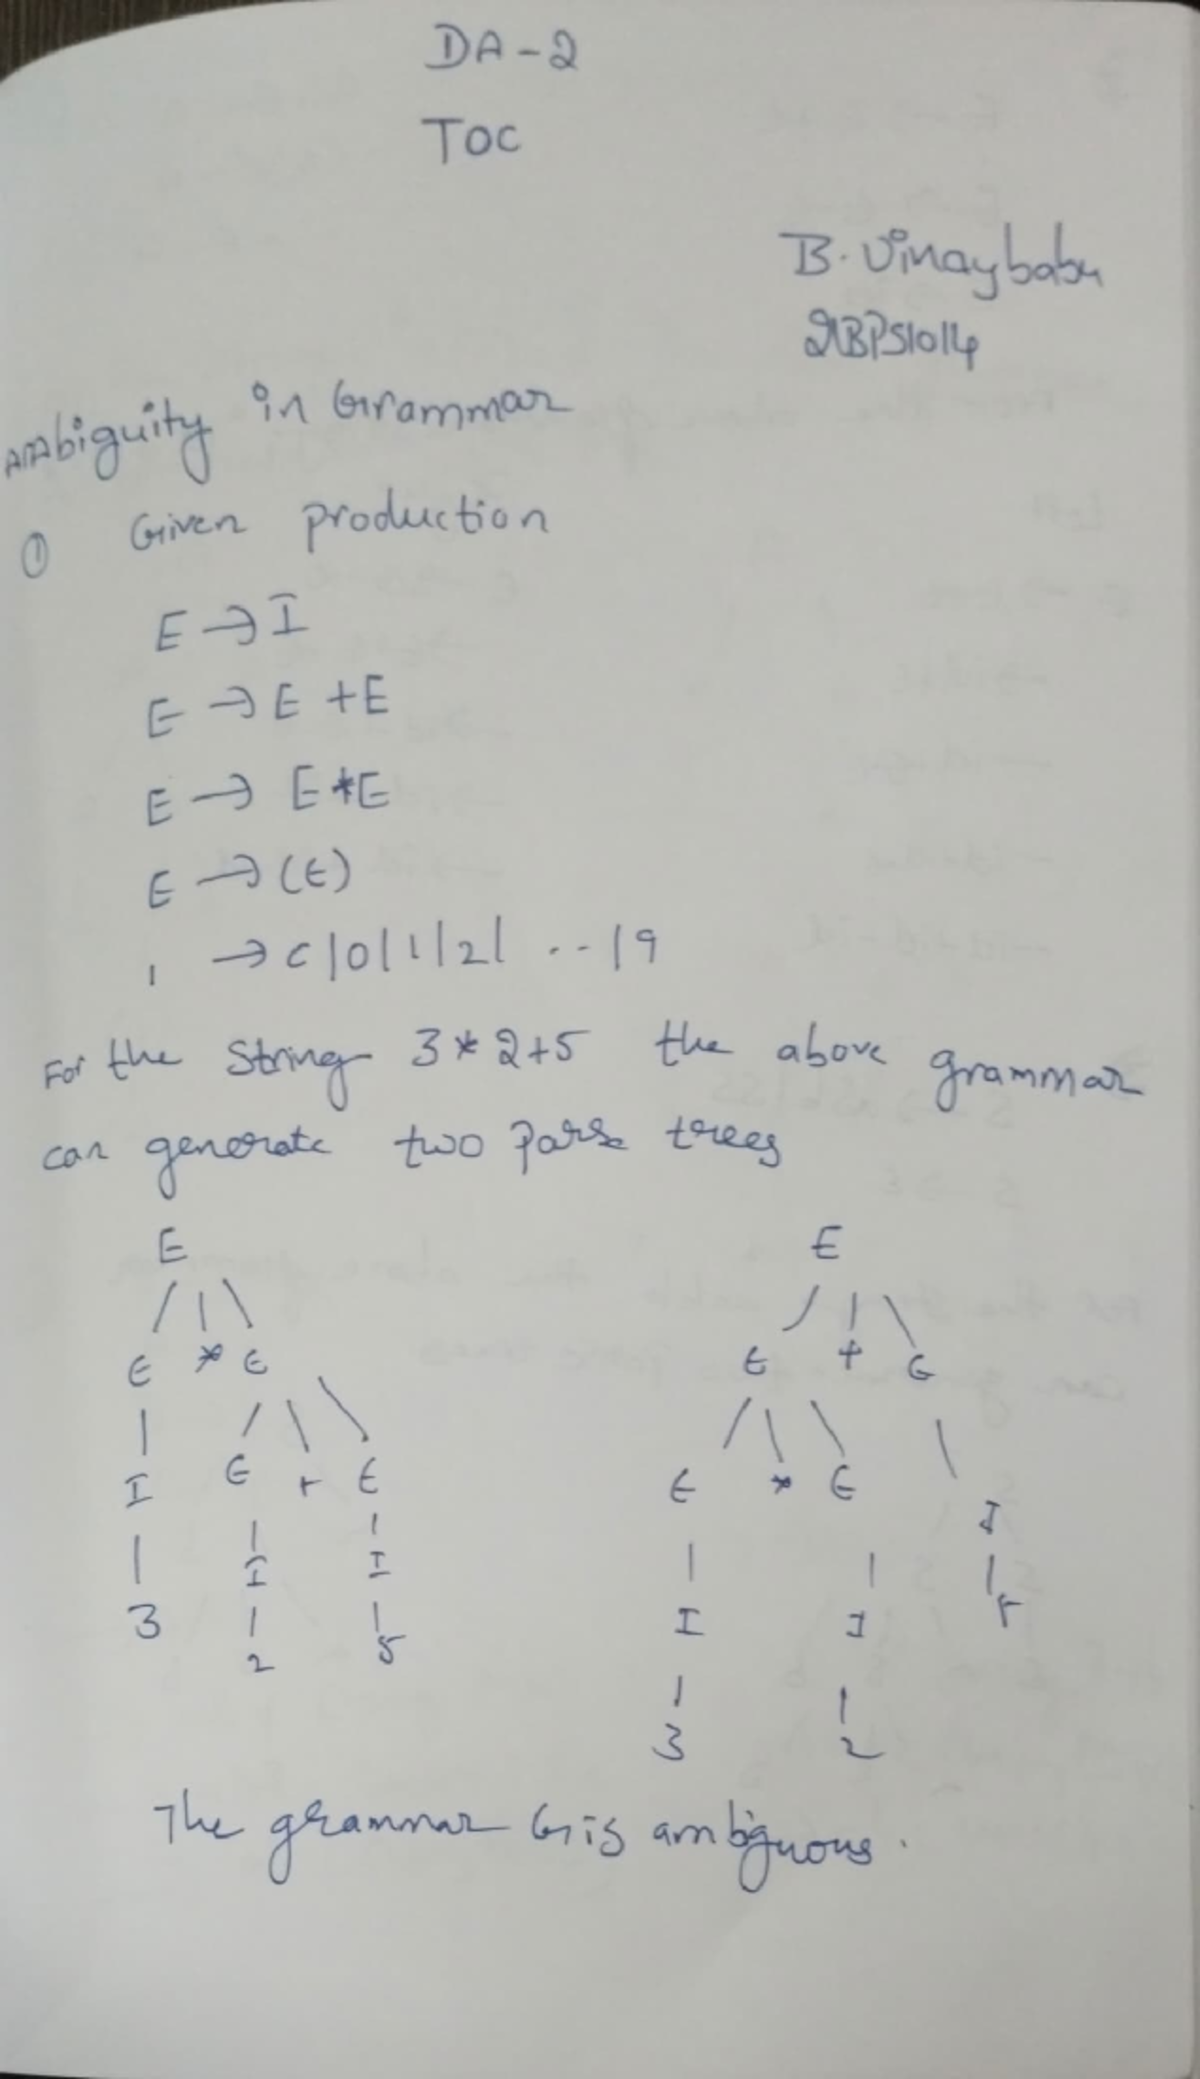 DA-2
TOC
B. Vinaybabu
21BPS1014
Ambiguity in Grammar
① Given production
E → I
E → E + E
E → E * E
E → (E)
I → ε | 0 | 1 | 2 | ... | 9
For the string 3 * 2 + 5 the above grammar
can generate two parse trees
E E
E * E E + E
I E + E E * E I
3 I I I I 5
2 5 3 2
The grammar G is ambiguous.